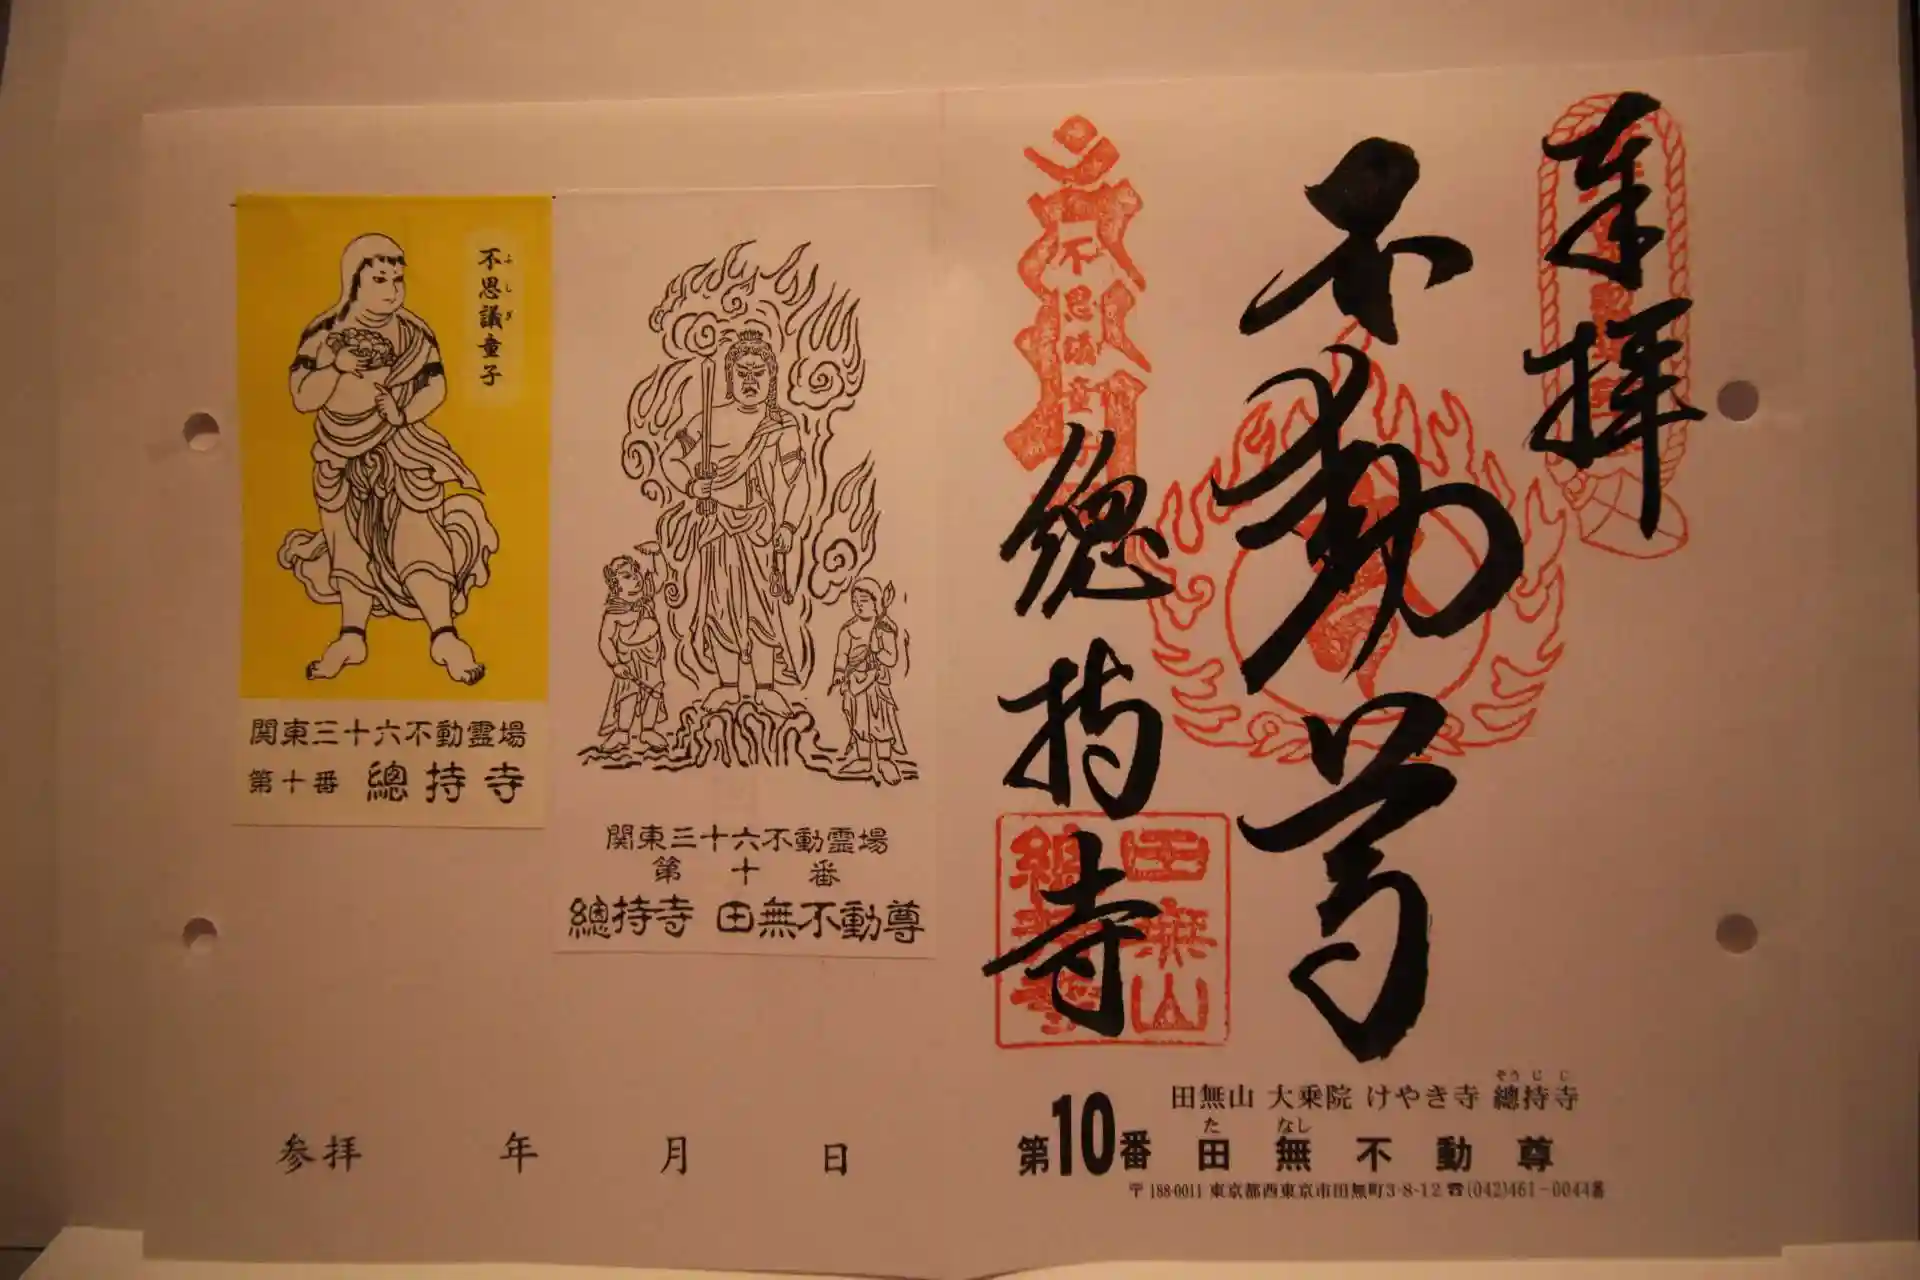 奉拝
不動尊
總持寺
不思議童子
田無山
總持寺
第10番
田無山 大乗院 けやき寺 總持寺
そうじじ
田無不動尊
たなし
〒188-0011 東京都西東京市田無町3-8-12 ☎(042)461-0044番
関東三十六不動霊場
第十番
總持寺 田無不動尊
不思議童子
ふしぎ
関東三十六不動霊場
第十番 總持寺
参拝 年 月 日